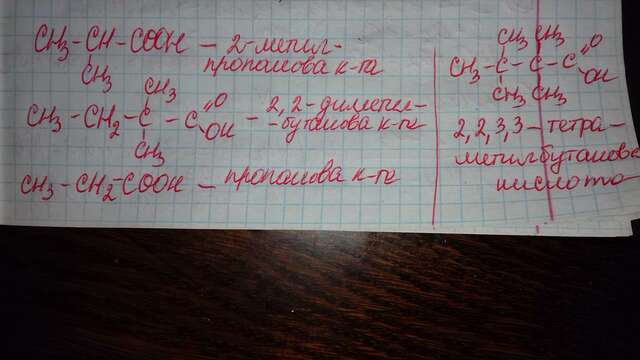 CH3-CH-COOH — 2-метил-
CH3 пропанова к-та
CH3
CH3-CH2-C-C =O — 2,2-диметил-
OH -бутанова к-та
CH3
CH3-CH2-COOH — пропанова к-та
CH3 CH3
CH3-C-C-C =O
OH
CH3 CH3
2,2,3,3-тетра-
метилбутанова
кислота